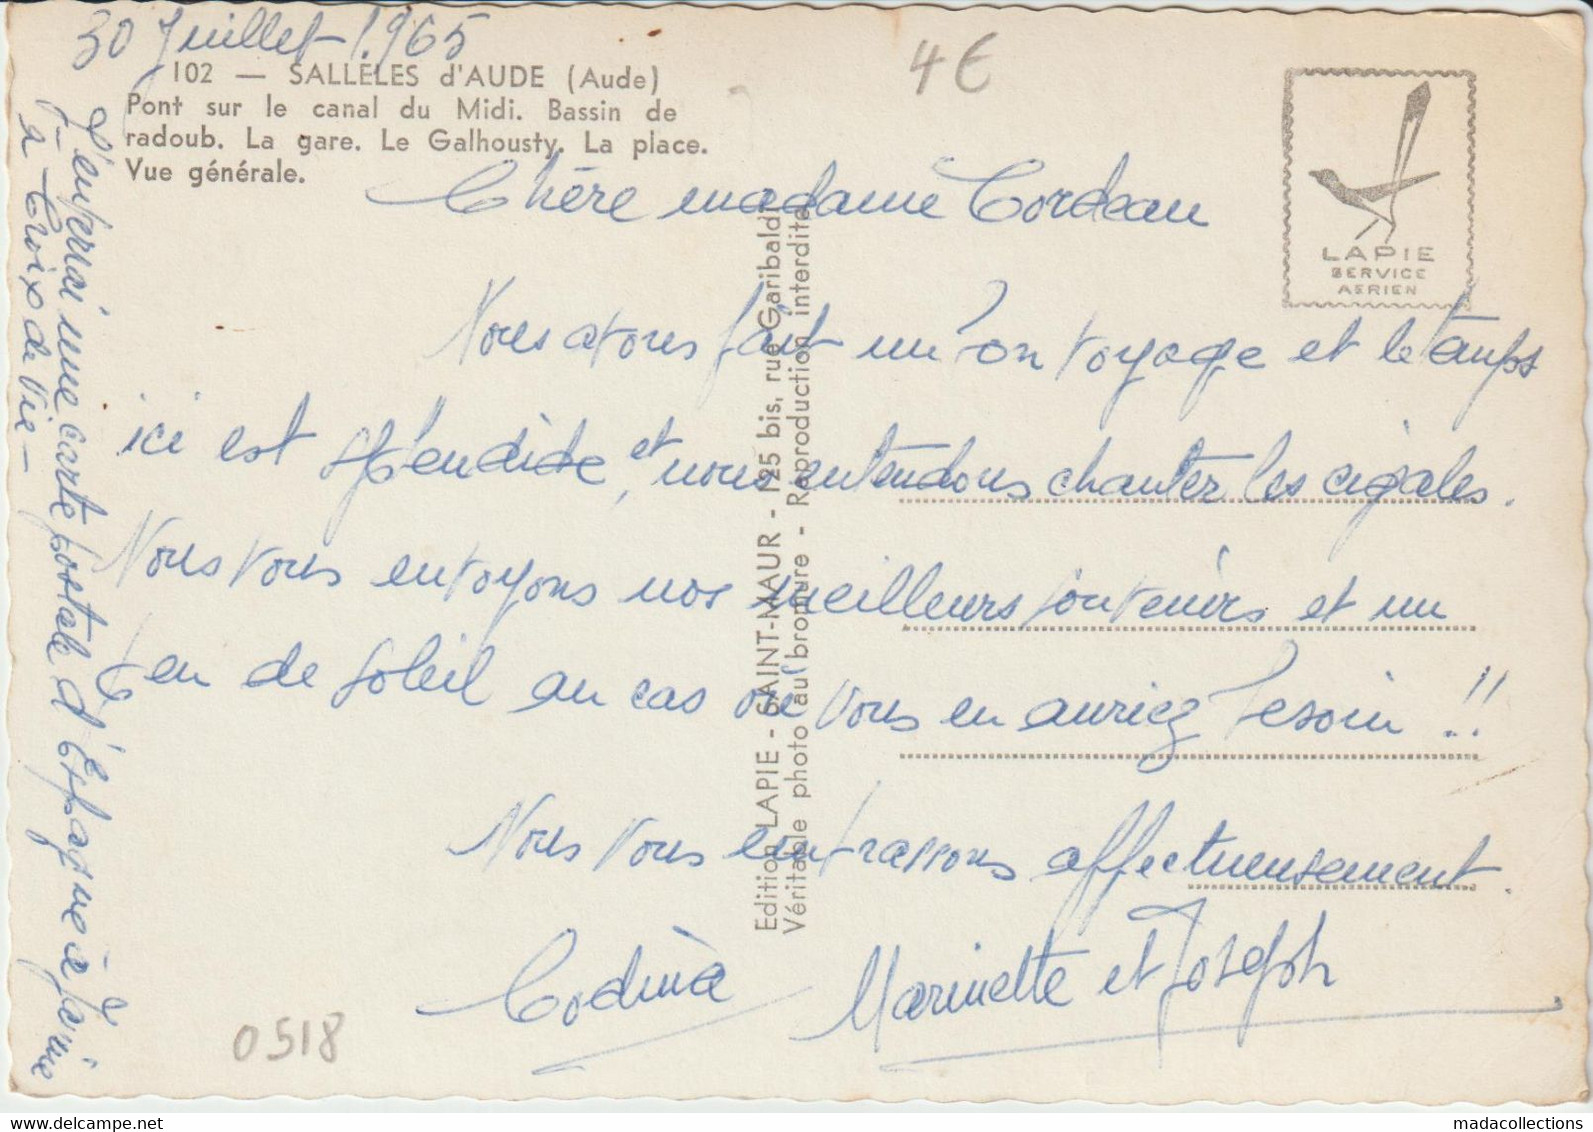 30 Juillet 1965
4€
102 — SALLELES d'AUDE (Aude)
Pont sur le canal du Midi. Bassin de
radoub. La gare. Le Galhousty. La place.
Vue générale.
LAPIE
SERVICE
AERIEN
Chère madame Cordeau
Nous avons fait un bon voyage et le temps
ici est splendide, et nous entendons chanter les cigales.
Nous vous envoyons nos meilleurs souvenirs et un
peu de soleil au cas où vous en auriez besoin !!
Nous vous embrassons affectueusement.
Codina Marinette et Joseph
J'enverrai une carte postale d'Espagne à
à Croix de Vie -
Edition LAPIE - SAINT-MAUR - 125 bis, rue Garibaldi
Véritable photo au bromure - Reproduction interdite
0518
madacollections